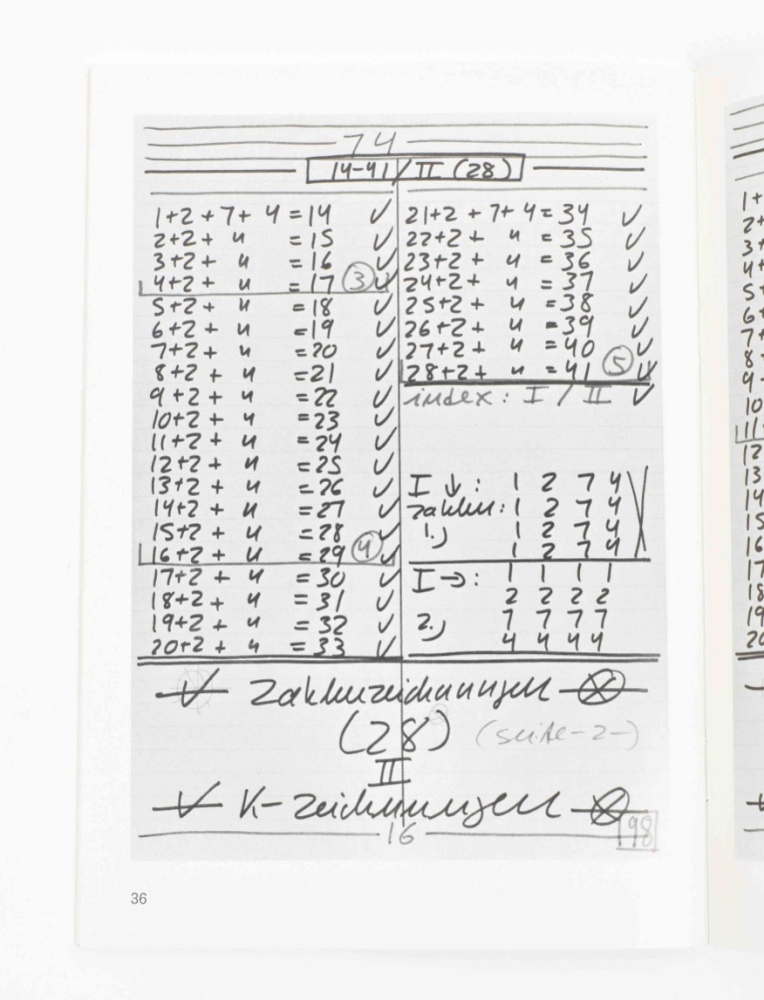 74
14-41/II (28)
1+2+7+4=14 ✓
2+2+ " =15 ✓
3+2+ " =16 ✓
4+2+ " =17 ③ ✓
5+2+ " =18 ✓
6+2+ " =19 ✓
7+2+ " =20 ✓
8+2+ " =21 ✓
9+2+ " =22 ✓
10+2+ " =23 ✓
11+2+ " =24 ✓
12+2+ " =25 ✓
13+2+ " =26 ✓
14+2+ " =27 ✓
15+2+ " =28 ✓
16+2+ " =29 ④ ✓
17+2+ " =30 ✓
18+2+ " =31 ✓
19+2+ " =32 ✓
20+2+ " =33 ✓
21+2+7+4=34 ✓
22+2+ " =35 ✓
23+2+ " =36 ✓
24+2+ " =37 ✓
25+2+ " =38 ✓
26+2+ " =39 ✓
27+2+ " =40 ✓
28+2+ " =41 ⑤ ✓
index: I / II ✓
I ↓: 1 2 7 4
zahlen: 1 2 7 4
1.) 1 2 7 4
1 2 7 4
I →: 1 1 1 1
2 2 2 2
2.) 7 7 7 7
4 4 4 4
✓ Zahlenzeichnungen ⊗
(28) (seite-2-)
II
✓ K-zeichnungen ⊗
16
98
36
1+
2+
3+
4+
5+
6+
7+
8+
9+
10
11
12
13
14
15
16
17
18
19
20